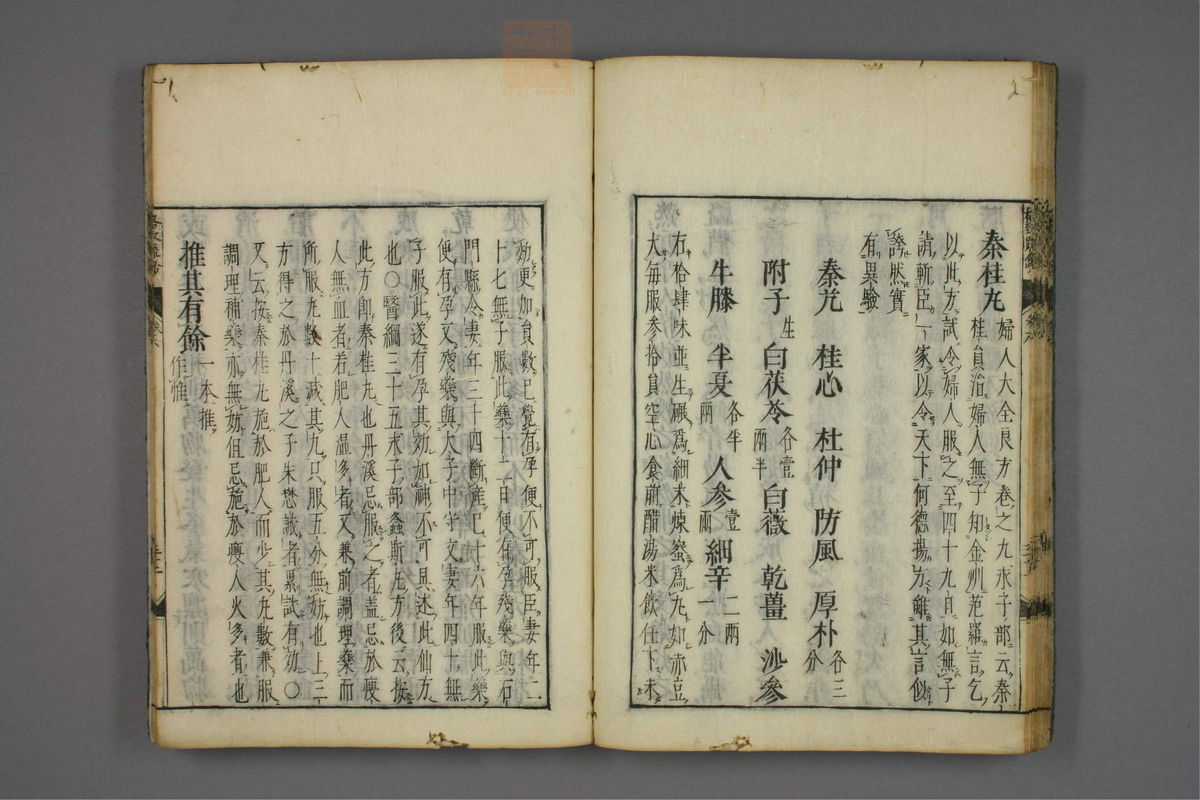 秦桂丸 婦人大全良方卷之九求子部云秦
桂員治婦人無子知金州范羅言乞
以此方試令婦人服之至四十九日如無子
請斬臣一家以令天下何德揚方雖其言似
誇然實
有異驗
秦艽 桂心 杜仲 防風 厚朴各三分
附子生 白茯苓各壹兩半 白薇 乾薑 沙參
牛膝 半夏各半兩 人參壹兩 細辛二兩一分
右拾肆味並生碾爲細末煉蜜爲丸如赤豆
大每服參拾員空心食前醋湯米飲任下未
効更加員數已覺有孕便不可服臣妻年二
十七無子服此藥十二日便有孕殘藥與石
門縣令妻年三十四斷產已十六年服此藥
便有孕又殘藥與太子中守文妻年四十無
子服此遂有孕其効如神不可具述此仙方
也〇醫綱三十五求子部螽斯丸方後云按
此方卽秦桂丸也丹溪忌服之者蓋忌於瘦
人無血者若肥人濕多者又兼前調理藥而
所服丸數十減其九只服五分無妨也上三
方得之於丹溪之子朱懋誠者累試有効〇
又云按秦桂丸施於肥人而少其丸數兼服
調理補藥亦無妨但忌施於瘦人火多者也
推其有餘 一本推
作惟